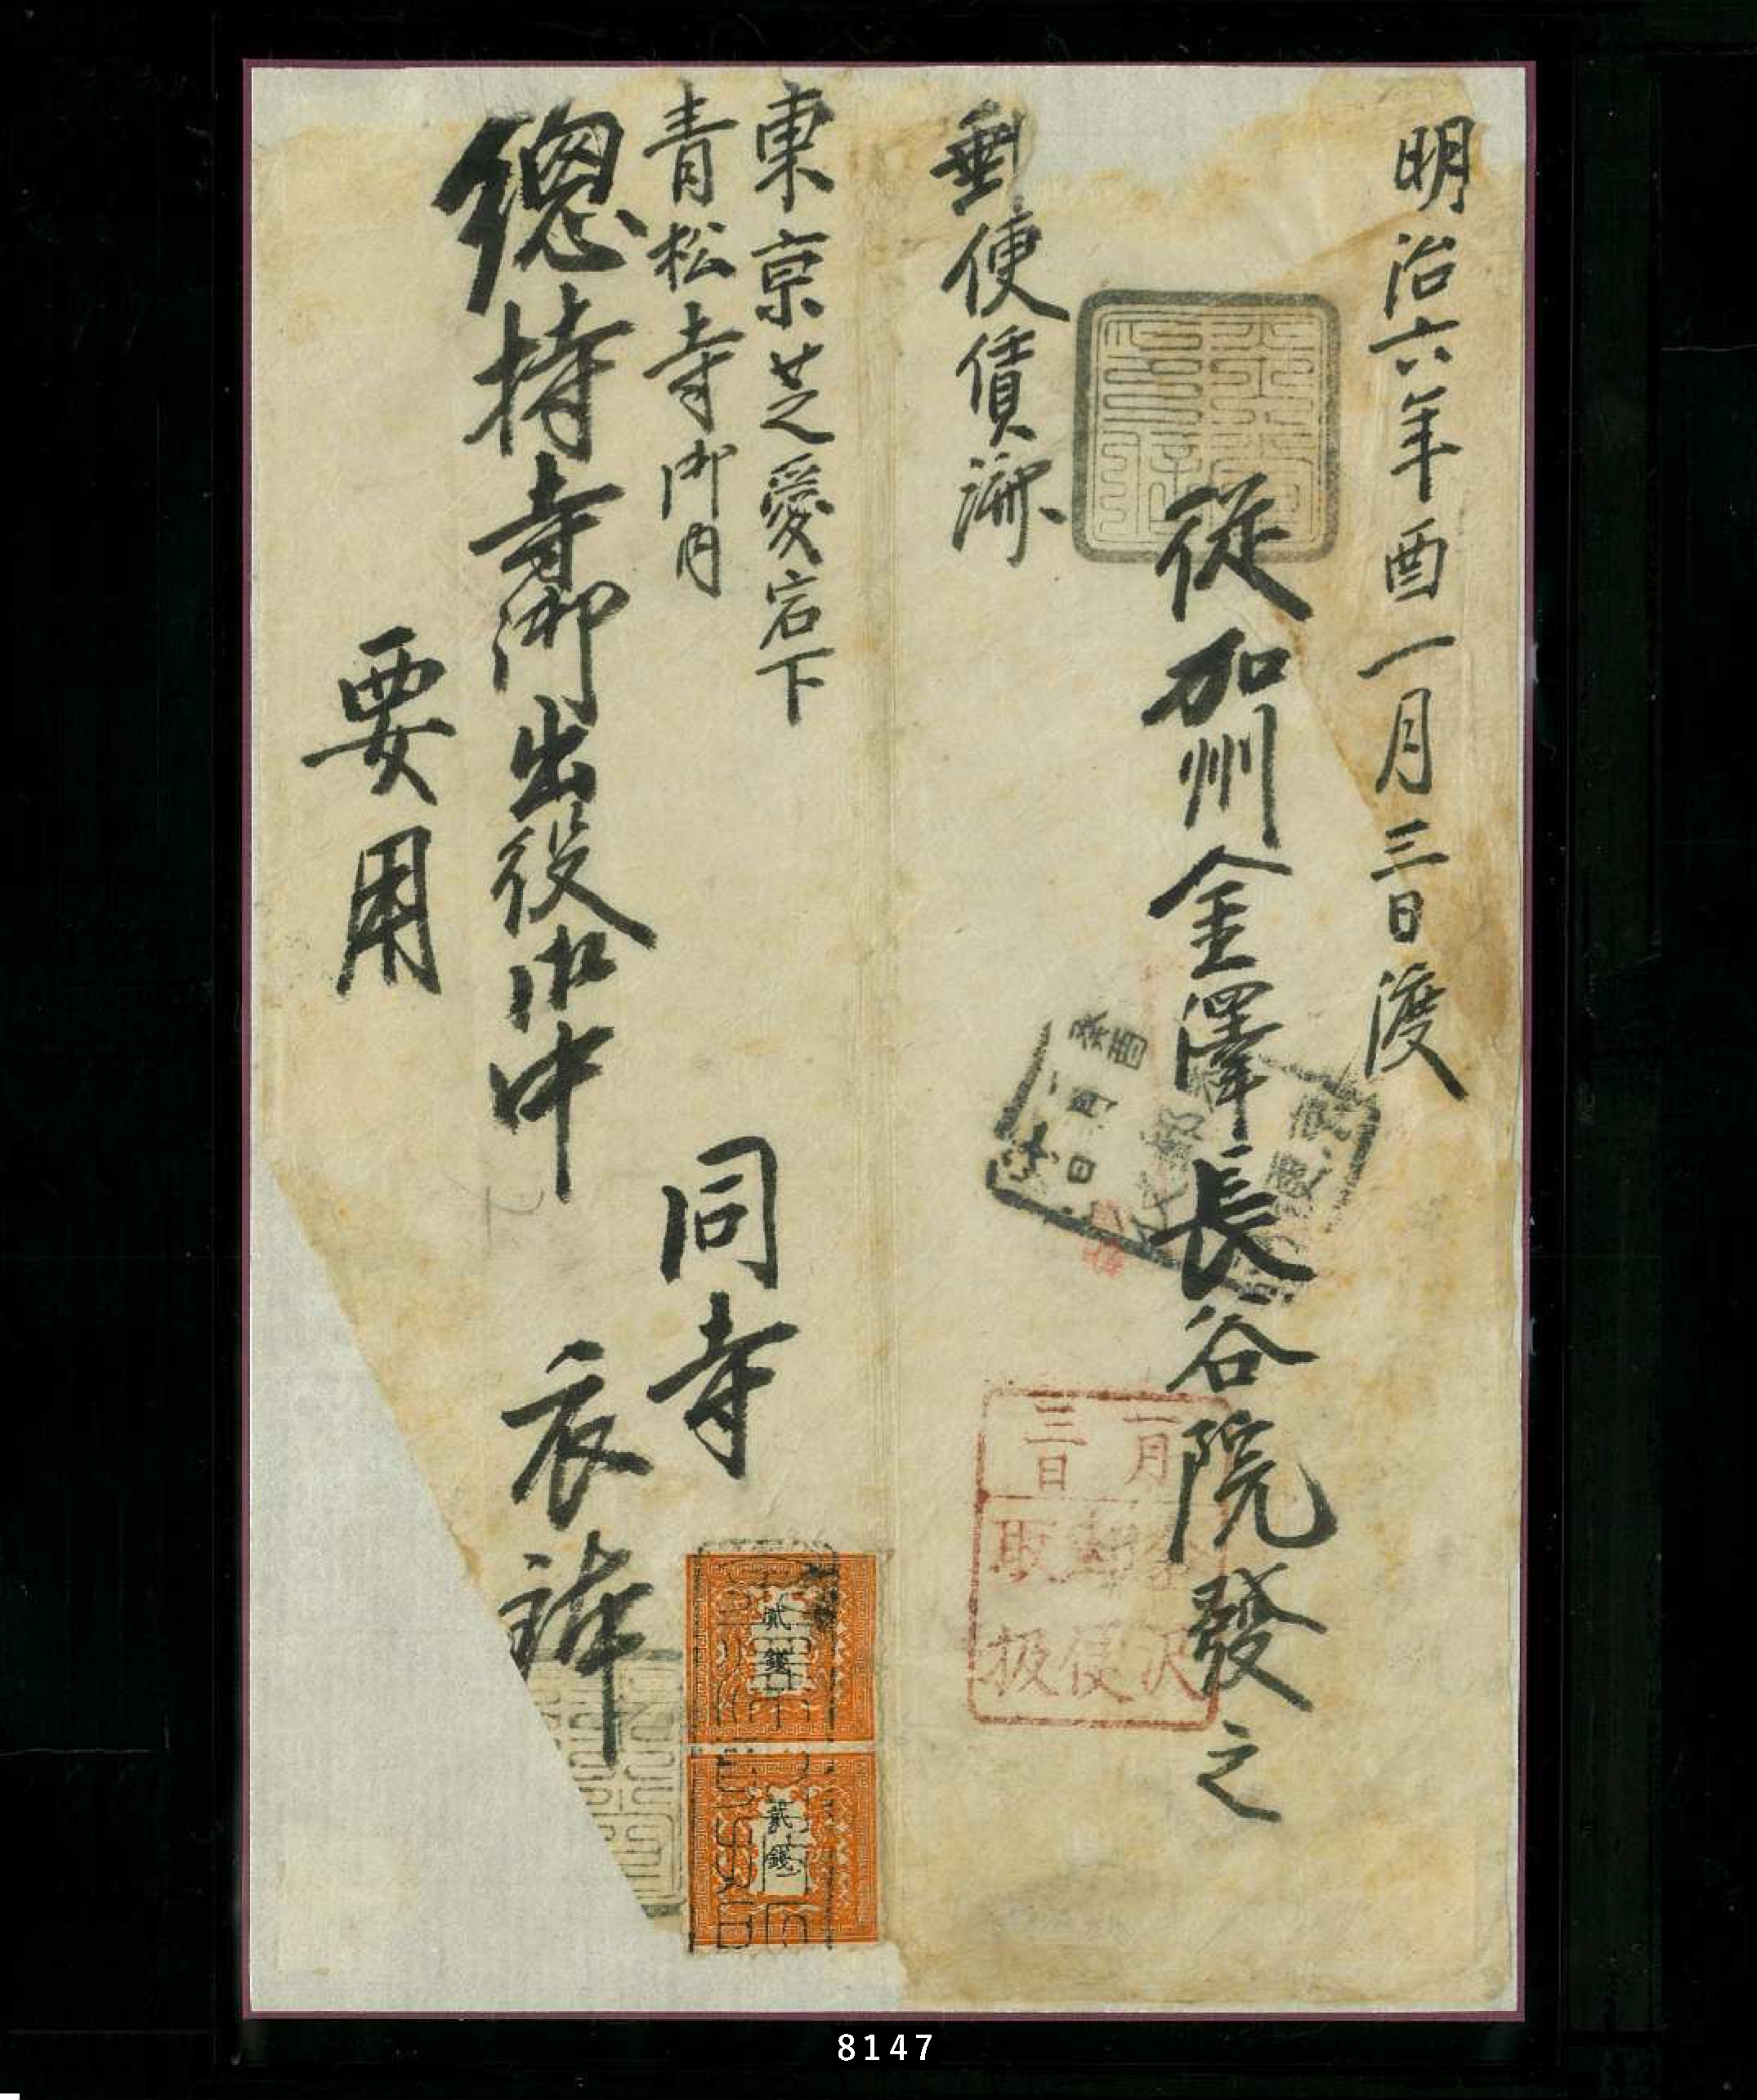 明治六年酉一月三日渡
從加州金澤長谷院發之
郵便賃濟
東京芝愛宕下
青松寺御内
總持寺御出役御中
同寺
衣
要用
癸酉
一月
日
一月
三日
金沢
郵便
取扱
貳錢
貳錢
8147